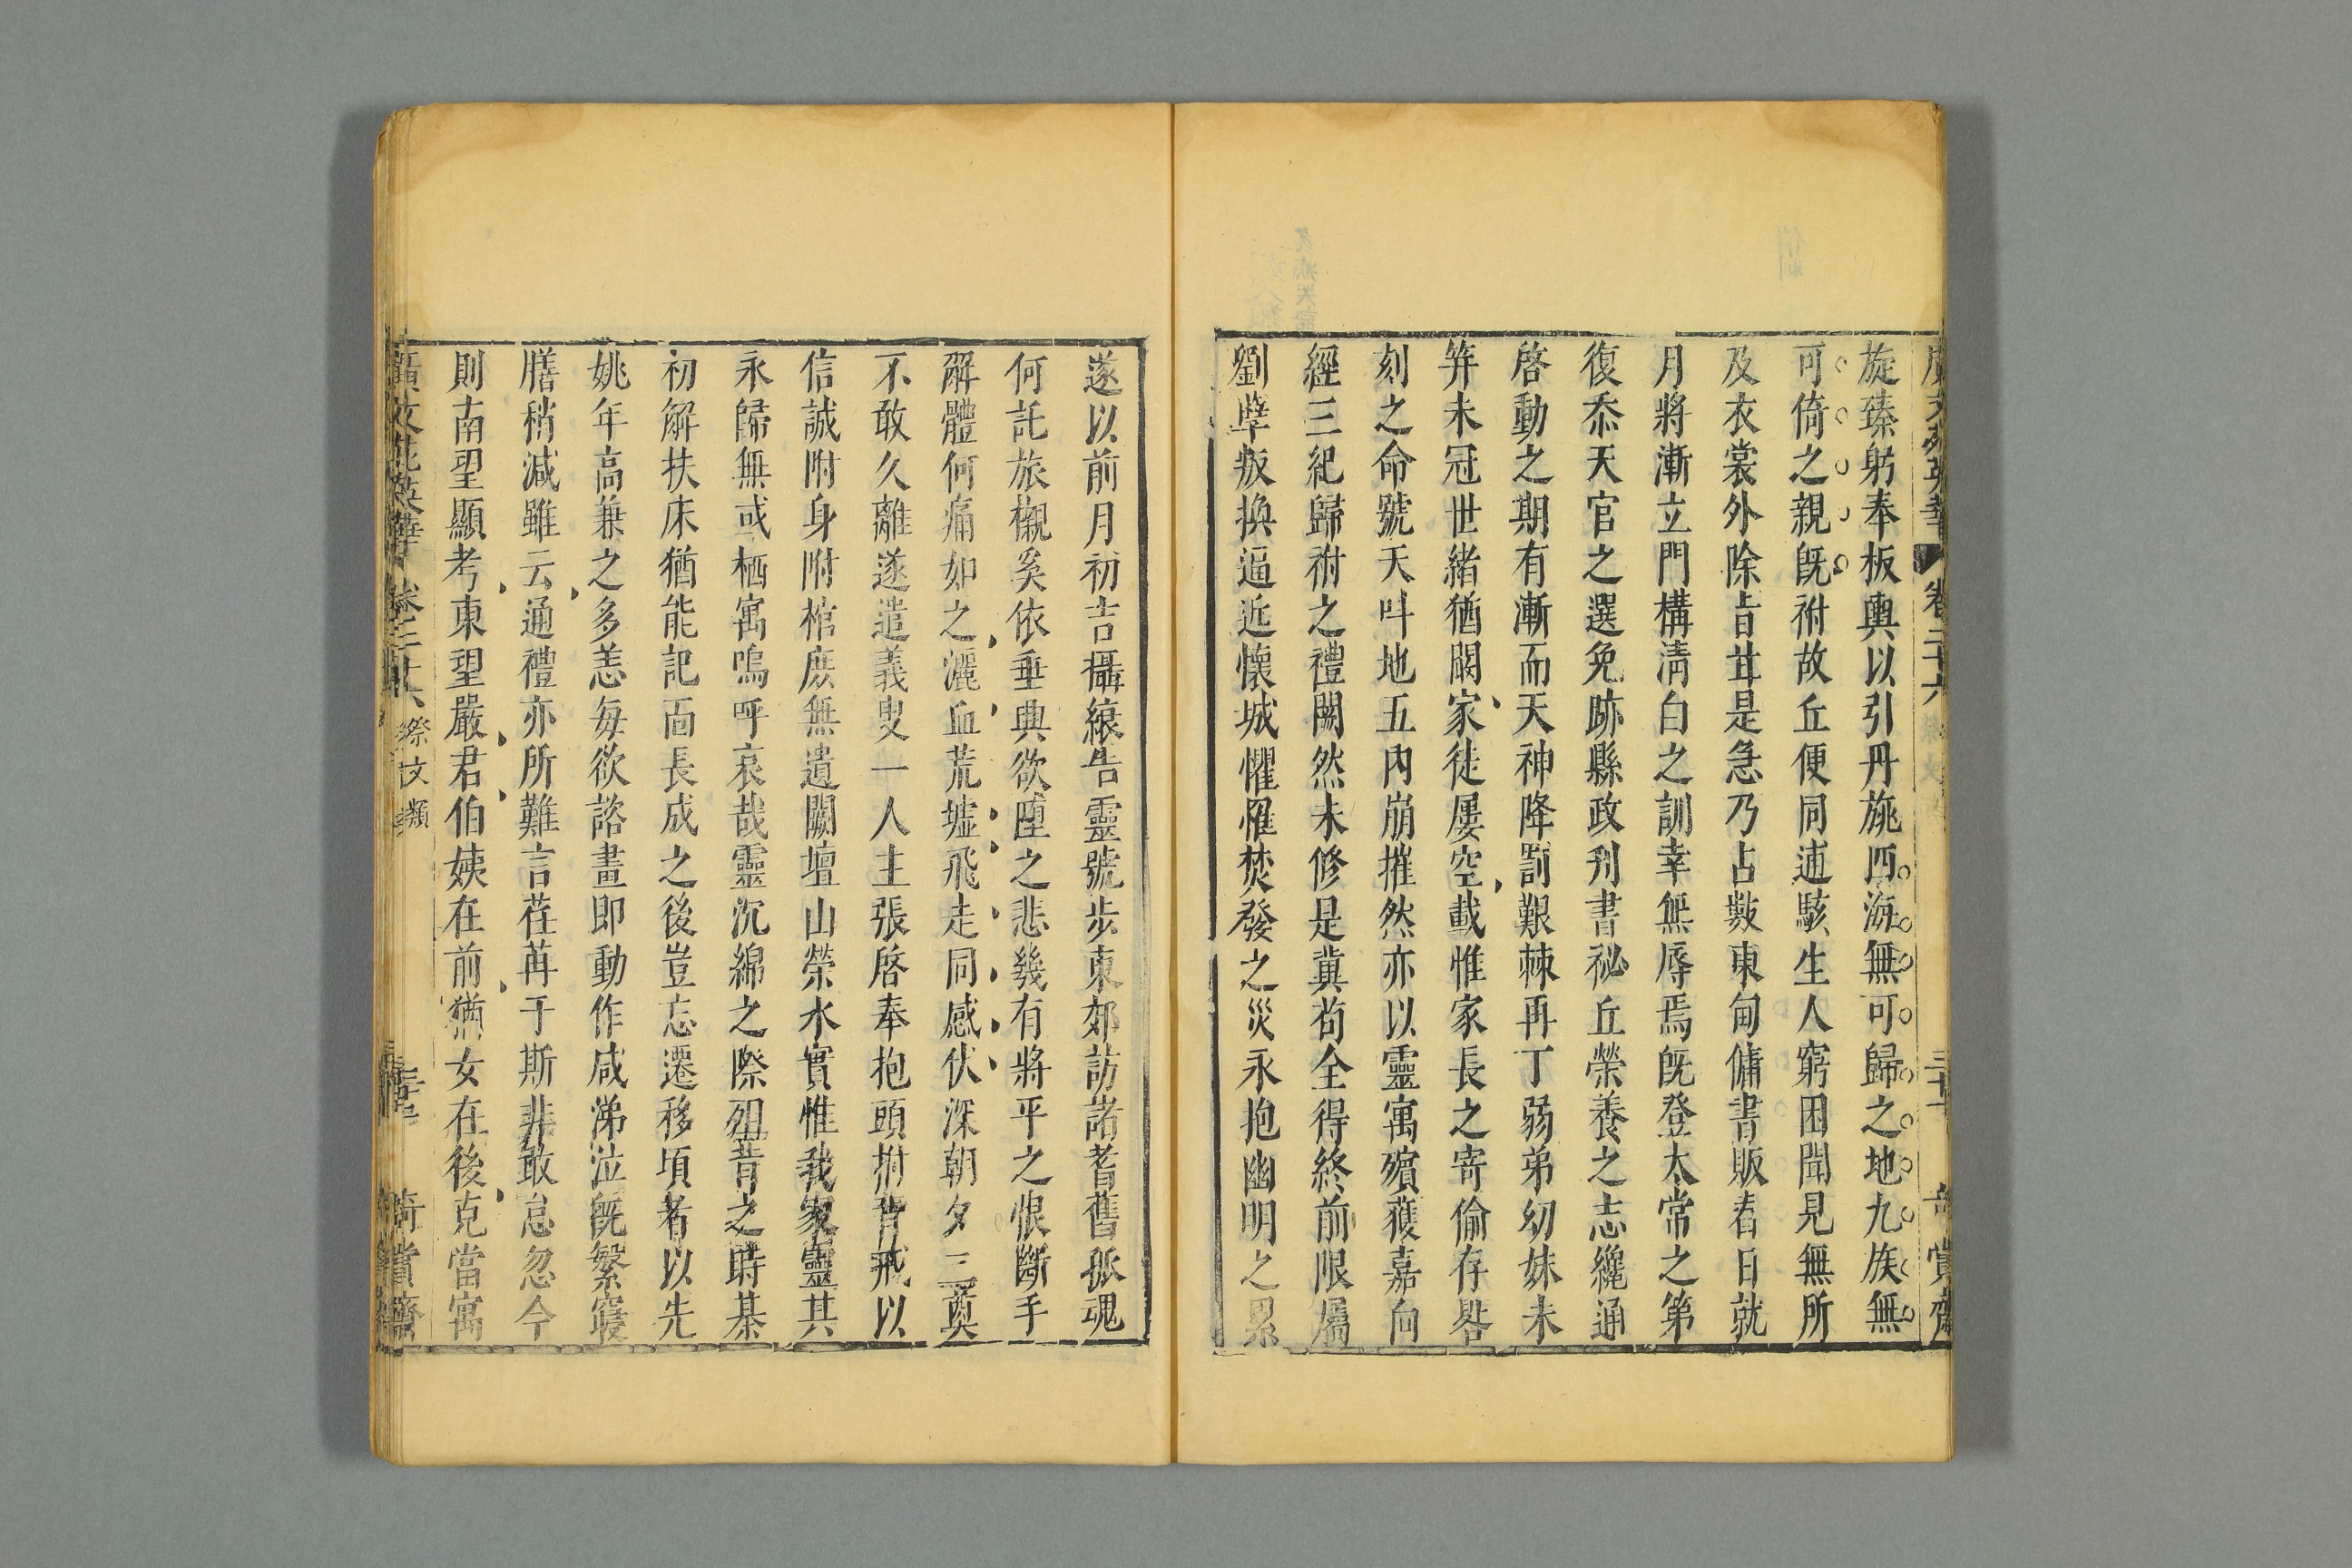 卷二十六
旋臻躬奉板輿以引丹旐四海無可歸之地九族無
可倚之親既祔故丘便同逋駭生人窮困聞見無所
及衣裳外除旨甘是急乃占數東甸傭書販舂日就
月將漸立門構淸白之訓幸無辱焉既登太常之第
復忝天官之選免跡縣政刋書祕丘榮養之志纔通
啓動之期有漸而天神降罰艱棘再丁弱弟幼妹未
笄未冠世緒猶闕家徒屢空載惟家長之寄偷存晷
刻之命號天呌地五內崩摧然亦以靈寓殯獲嘉向
經三紀歸祔之禮闕然未修是冀苟全得終前限屬
劉孽叛換逼近懷城懼罹焚發之災永抱幽明之累
遂以前月初吉攝縗告靈號步東郊訪諸耆舊孤魂
何託旅櫬奚依垂典欲堙之悲幾有將平之恨斷手
解體何痛如之灑血荒墟飛走同感伏深朝夕三奠
不敢久離遂遣義叟一人主張啓奉抱頭拊背戒以
信誠附身附棺庶無遺闕壇山榮水實惟我家靈其
永歸無或栖寓嗚呼哀哉靈沉綿之際殂背之時某
初解扶床猶能記面長成之後豈忘遷移頃者以先
姚年高兼之多恙每欲諮畫即動作咸涕泣既繁寢
膳稍減雖云通禮亦所難言荏苒于斯非敢怠忽今
則南望顯考東望嚴君伯姨在前猶女在後克當寓
廣文苑英華 卷二十六 祭文類